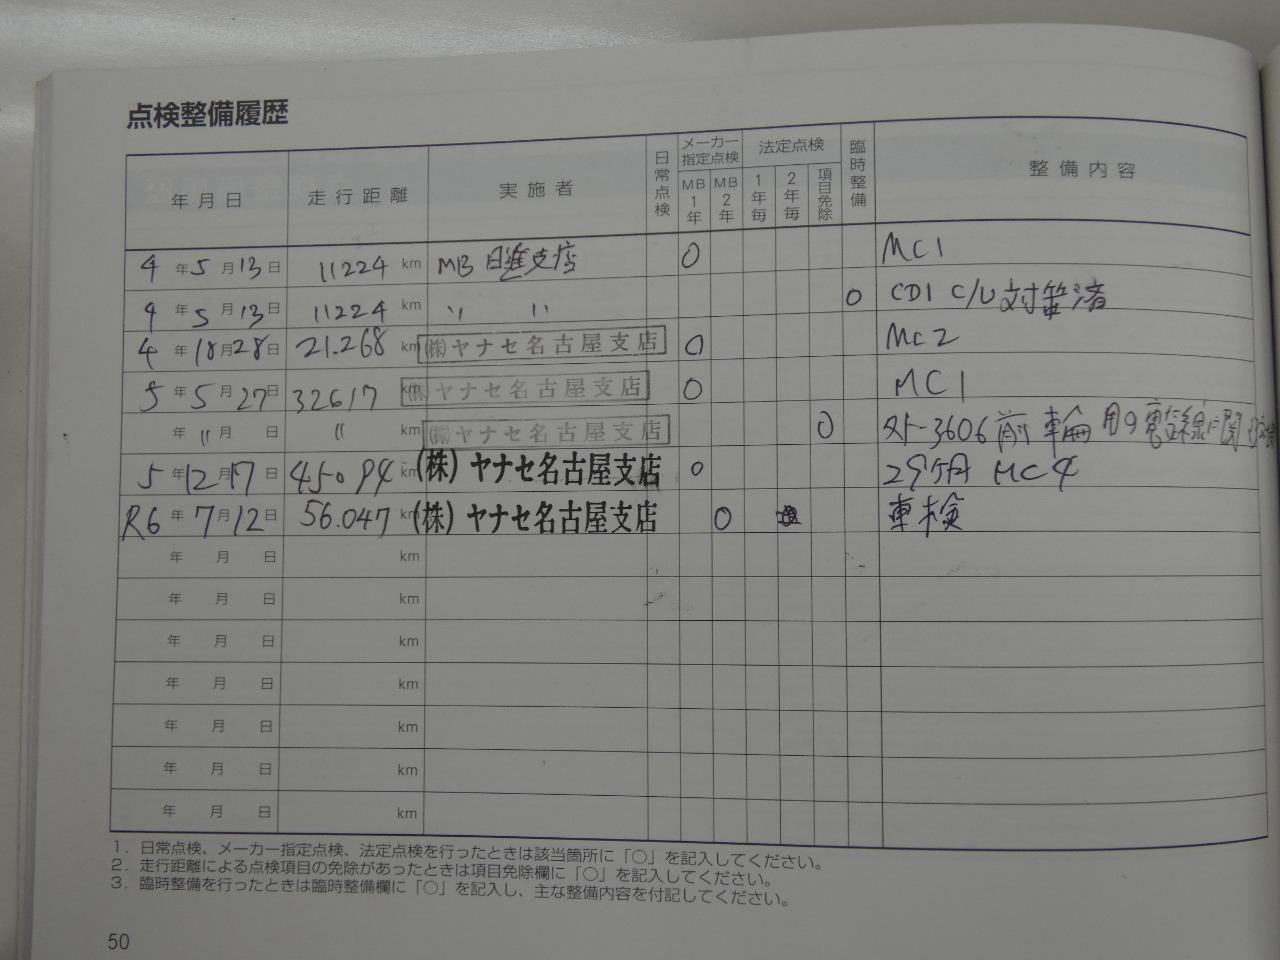 点検整備履歴
年月日 走行距離 実施者 日常点検 メーカー指定点検 MB1年 MB2年 法定点検 1年毎 2年毎 項目免除 臨時整備 整備内容
4年5月13日 11224km MB 日進支店 ○ MC1
4年5月13日 11224km 〃 〃 ○ CDI C/U 対策済
4年10月28日 21.268km (株)ヤナセ名古屋支店 ○ MC2
5年5月27日 32617km (株)ヤナセ名古屋支店 ○ MC1
年〃月 日 〃 km (株)ヤナセ名古屋支店 ○ 外-3606 前輪用の電気線に関
5年12月17日 45094km (株)ヤナセ名古屋支店 ○ 29ヶ月 MC4
R6年7月12日 56.047km (株)ヤナセ名古屋支店 ○ 車検
年 月 日 km
年 月 日 km
年 月 日 km
年 月 日 km
年 月 日 km
年 月 日 km
年 月 日 km
1. 日常点検、メーカー指定点検、法定点検を行ったときは該当箇所に「○」を記入してください。
2. 走行距離による点検項目の免除があったときは項目免除欄に「○」を記入してください。
3. 臨時整備を行ったときは臨時整備欄に「○」を記入し、主な整備内容を付記してください。
50